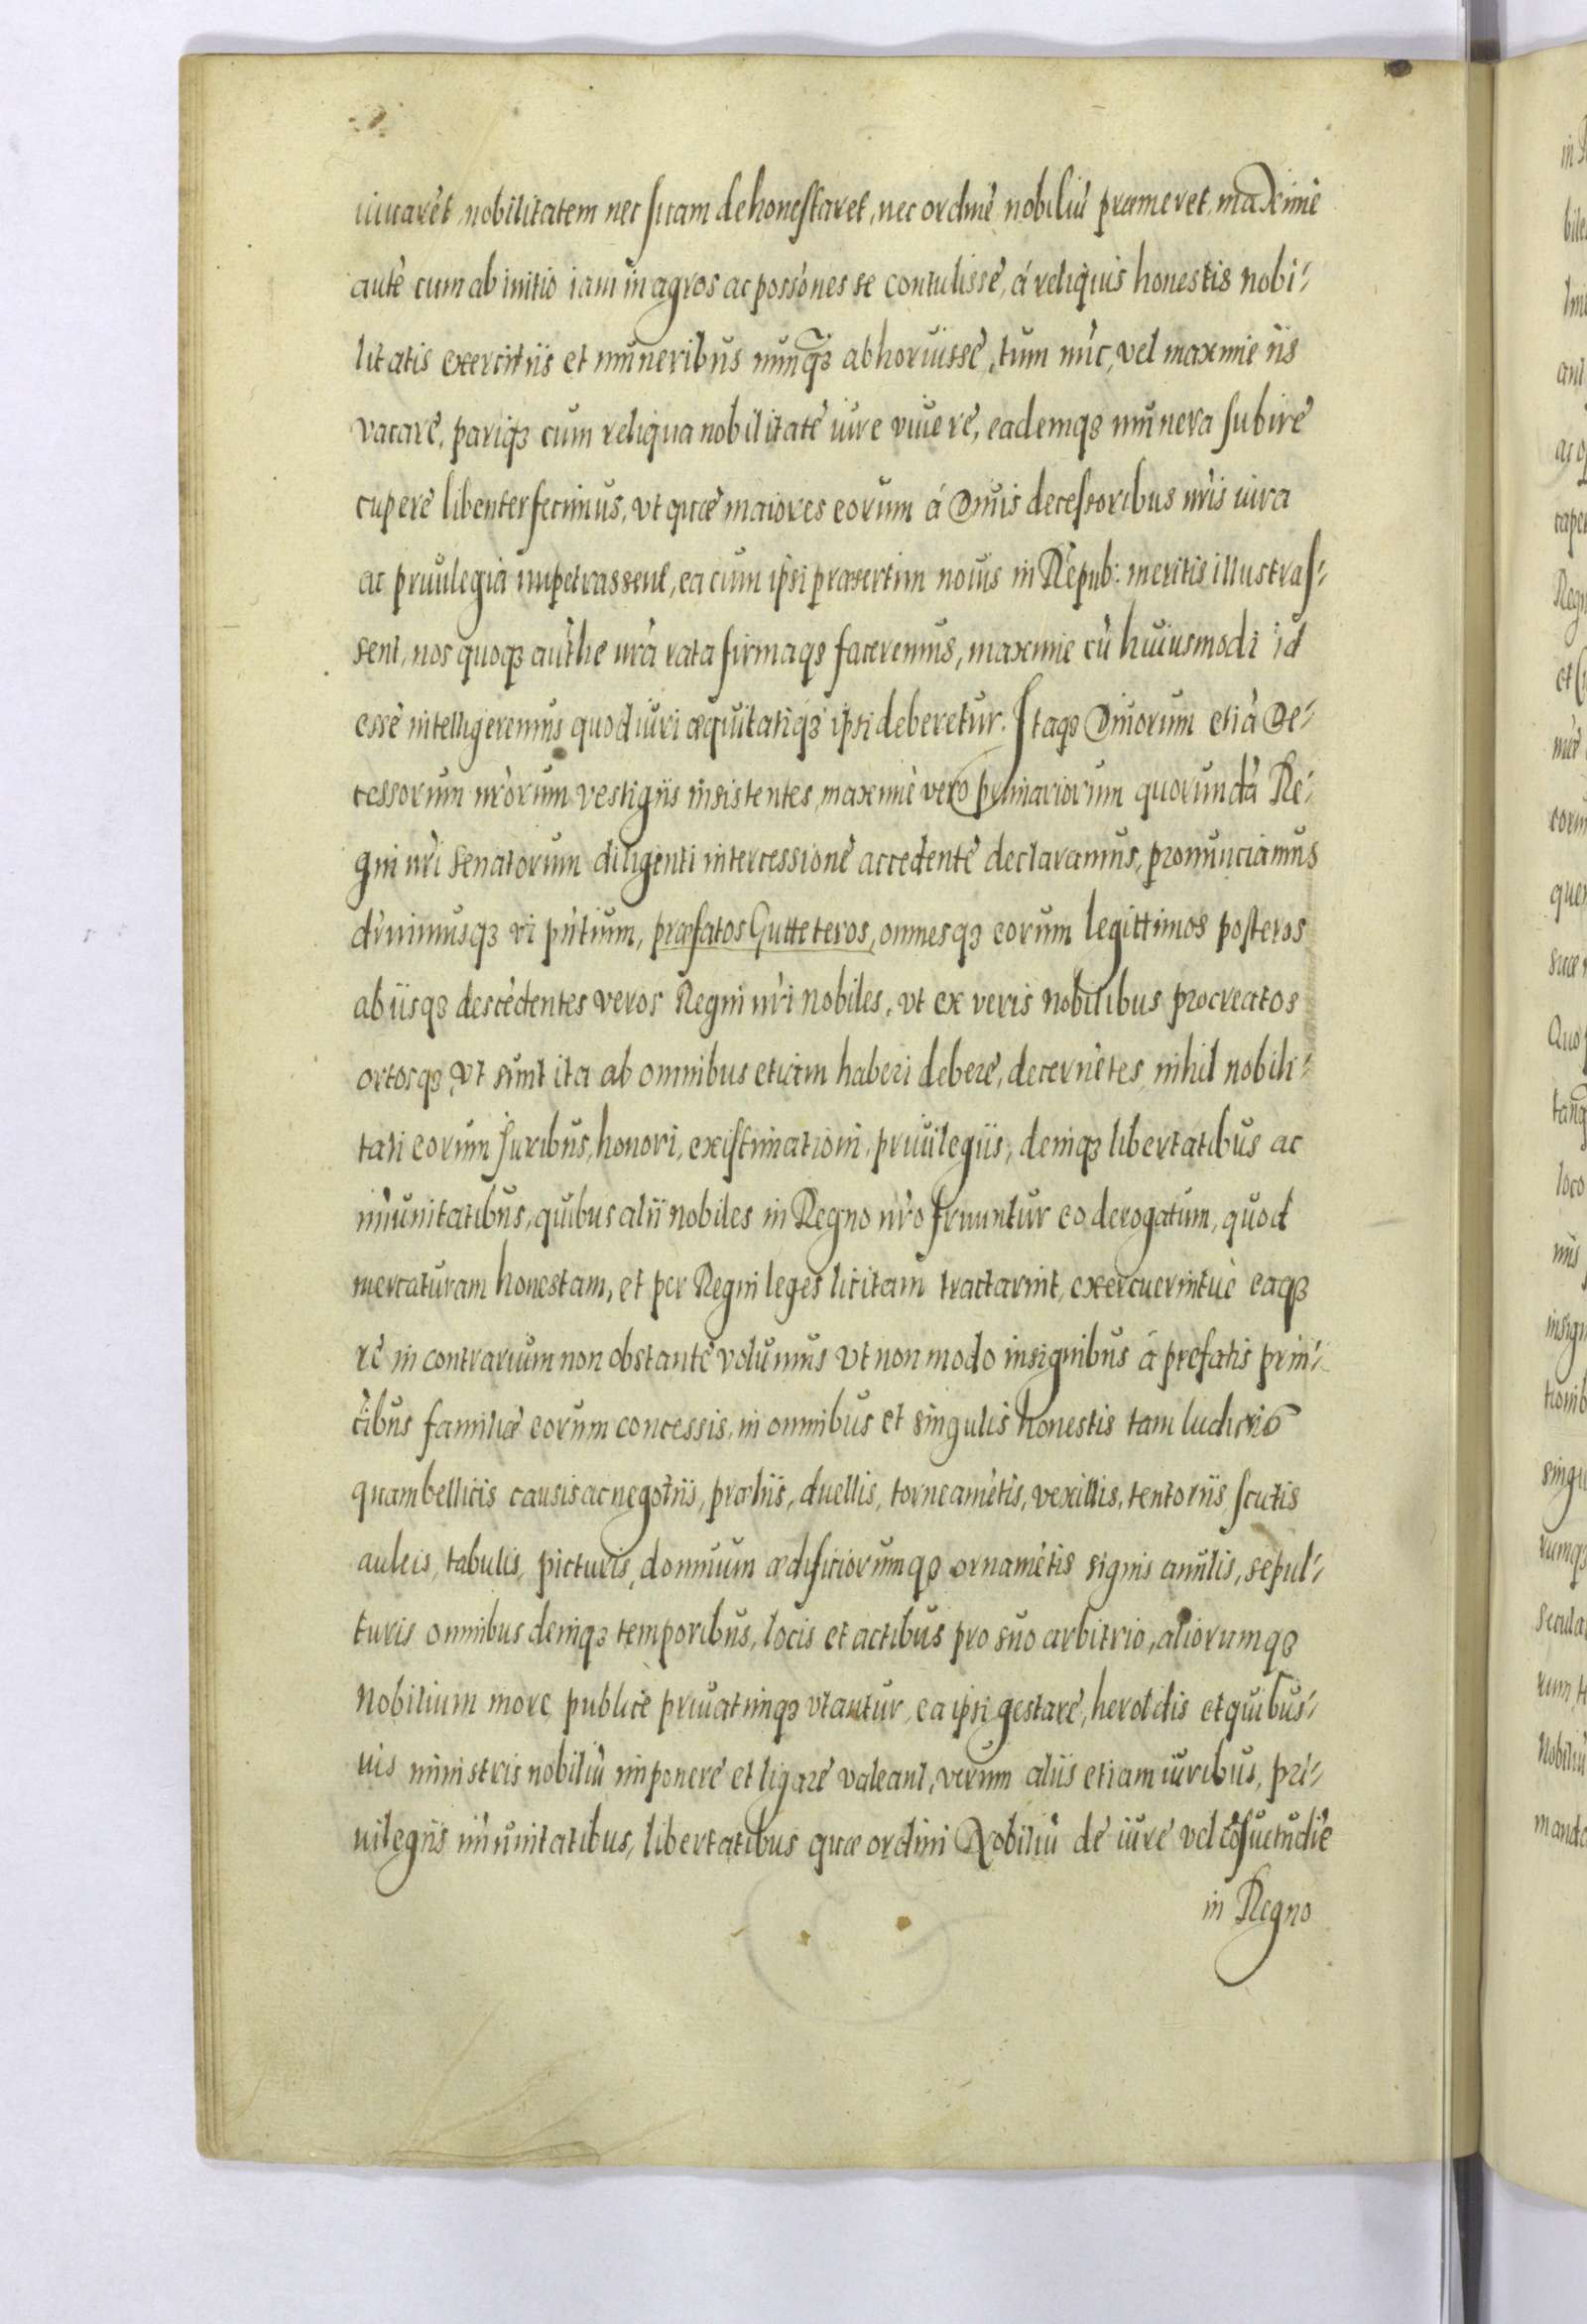 iuuarèt nobilitatem nec suam dehonestaret, nec ordinè nobiliù præmeret, maxime
autè cum ab initio iam in agros ac possònes se contulissè, á reliquis honestis nobi-
litatis exercitiis et muneribus nunq̃ʒ abhoruissè, tum nùc, vel maxime iis
vacarè, pariqʒ cum reliqua nobilitatè iure viuerè, eademqʒ munera subirè
cuperè libenter fecimus, vt quæ maiores eorum á Diuis decessoribus nr̀is iura
ac priuilegia impetrassent, ea cum ipsi præsertim nouis in Repub: meritis illustras-
sent, nos quoqʒ authe nr̀à rata firmaqʒ faceremus, maxime cù huiusmodi id
essè intelligeremus quod iuri æquitatiqʒ ipsi deberetur. Itaqʒ Diuorum etià De-
cessorum nr̀orum vestigiis insistentes, maximè vero primariorum quorundà Re-
gni nr̀i Senatorum diligenti intercessionè accedentè declaramus, pronunciamus
dr̀nimusqʒ vi pr̀tium, præfatos Gutteteros, omnesqʒ eorum legittimos posteros
ab iisqʒ descèdentes veros Regni nr̀i nobiles, vt ex veris nobilibus procreatos
ortosqʒ, vt sunt ita ab omnibus etiam haberi deberè, decernètes nihil nobili-
tati eorum Juribus, honori, existimationi, priuilegiis, deniqʒ libertatibus ac
im̀unitatibus, quibus alii nobiles in Regno nr̀o fruuntur eo derogatum, quod
mercaturam honestam, et per Regni leges licitam tractarint, exercuerintuè eaqʒ
rè in contrarium non obstantè volumus vt non modo insignibus á prefatis prin-
cibus familiæ eorum concessis, in omnibus et singulis honestis tam ludicris
quam bellicis causis ac negotiis, præliis, duellis, torneamètis, vexillis, tentoriis scutis
auleis, tabulis, picturis, domuum ædificiorumqʒ ornamètis signis anulis, sepul-
turis omnibus deniqʒ temporibus, locis et actibus pro suo arbitrio, aliorumqʒ
Nobilium more publicè priuatimqʒ vtantur, ea ipsi gestarè, heroldis et quibus-
uis ministris nobiliù imponerè et ligarè valeant, verum aliis etiam iuribus, pri-
uilegiis im̀unitatibus, libertatibus quæ ordini Nobiliù dè iurè vel còsuetudìe
in Regno